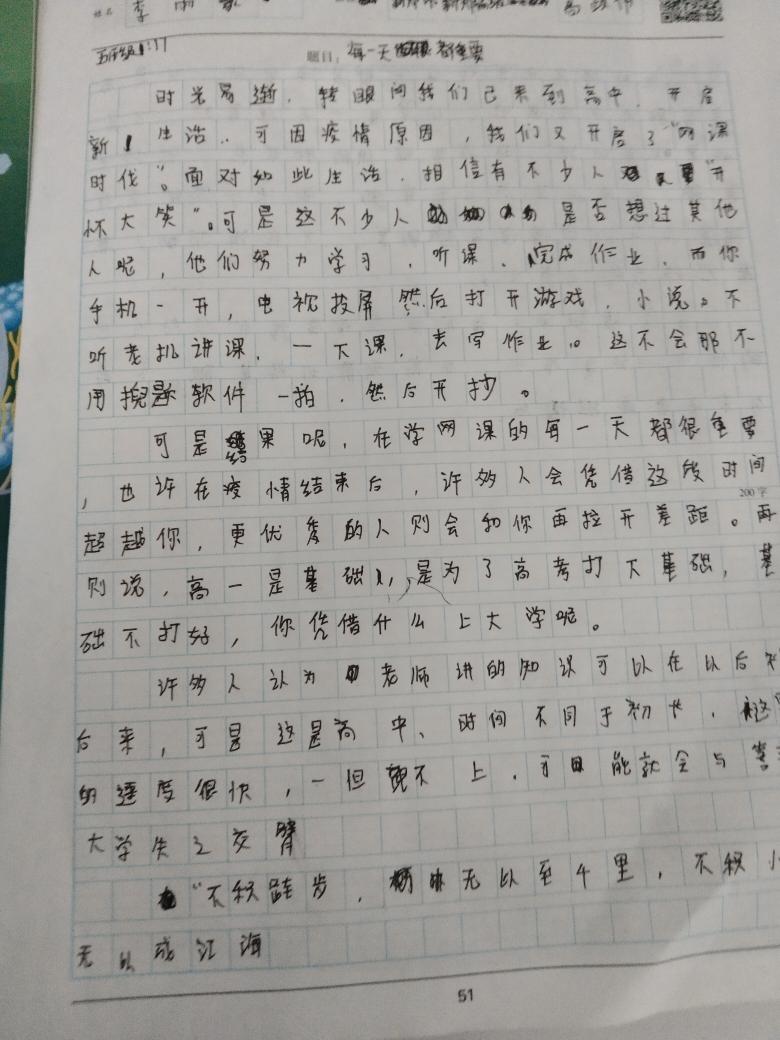 姓名
题目：每一天都很重要
时光易逝，转眼间我们已来到高中，开启
新生活，可因疫情原因，我们又开启了“网课
时代”。面对如此生活，相信有不少人“开
怀大笑”。可是这不少人是否想过其他
人呢，他们努力学习，听课，完成作业，而你
手机一开，电视投屏然后打开游戏，小说。不
听老机讲课，一下课，去写作业。这不会那不
用，软件一拍，然后开抄。
可是结果呢，在学网课的每一天都很重要
，也许在疫情结束后，许多人会凭借这段时间
200字
超越你，更优秀的人则会和你再拉开差距。再
则说，高一是基础，是为了高考打下基础，基
础不打好，你凭借什么上大学呢。
许多人认为老师讲的知识可以在以后
后来，可是这是高中，时间不同于初中，
的速度很快，一但跟不上，可能就会与
大学失之交臂
“不积跬步，无以至千里，不积小
无以成江海
51